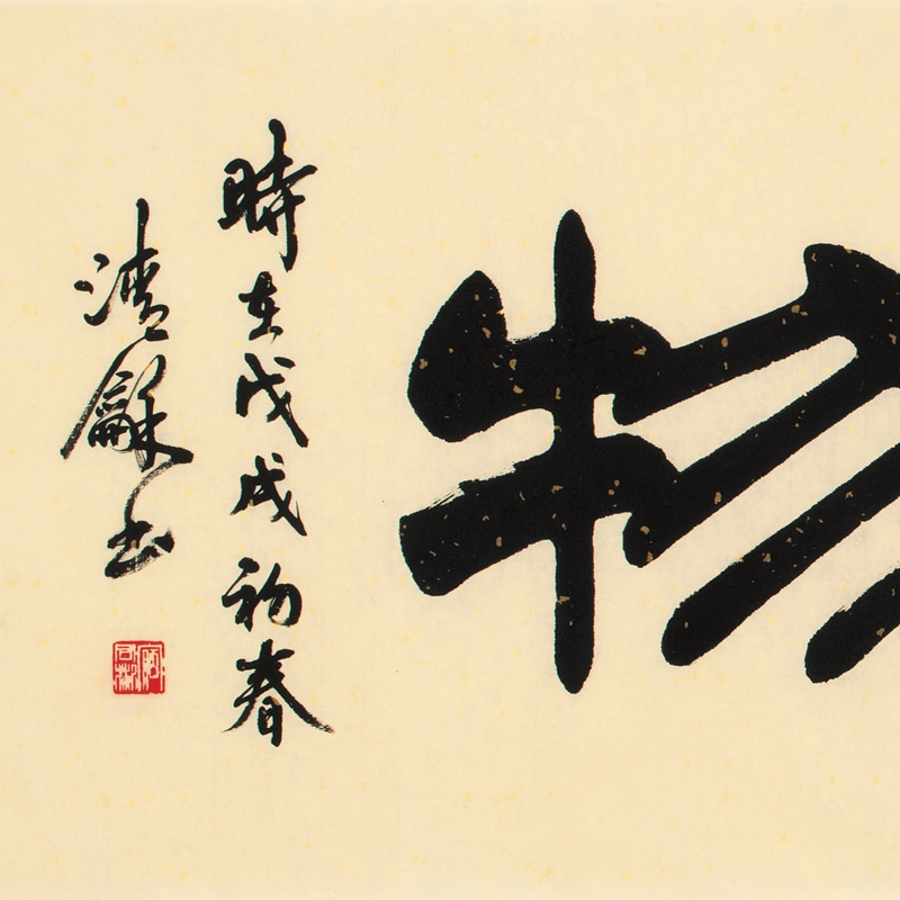 物
時在戊戌初春
清龢书